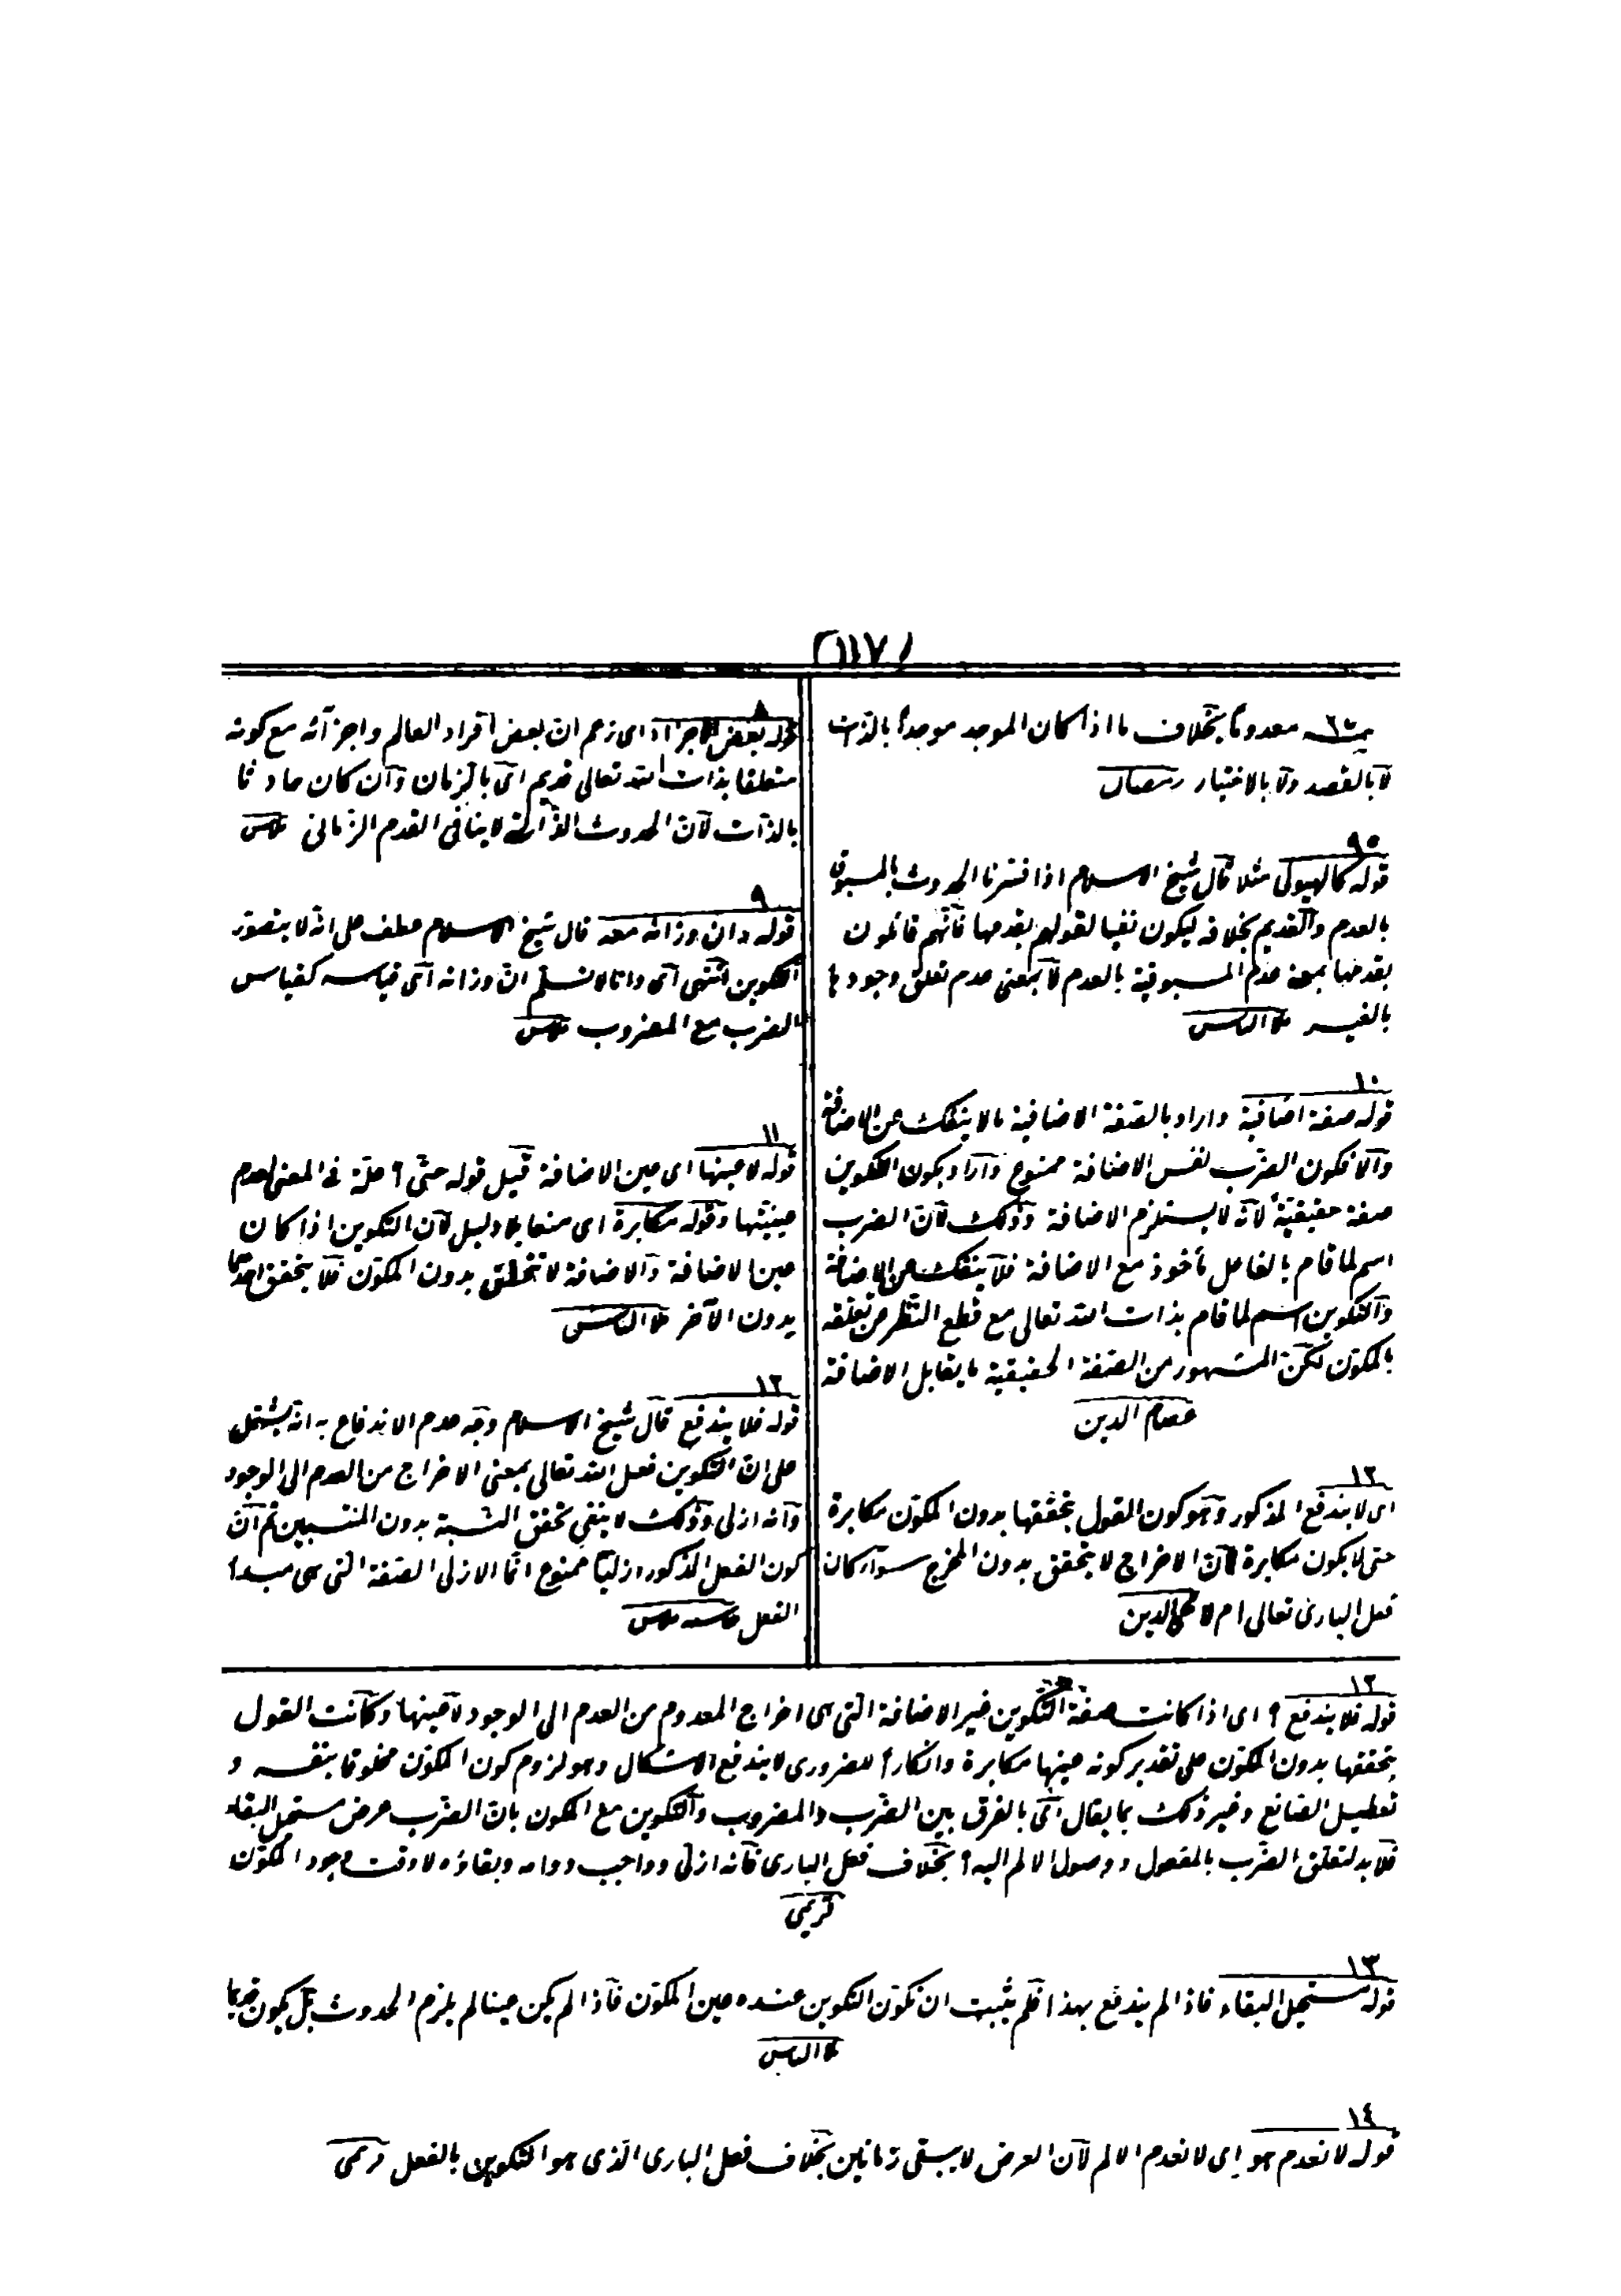 (١١٧)
معدوما بخلاف ما اذا كان الموجد موجدا بالذات
لا بالقصد ولا بالاختيار رمضان
٩٥
قوله كالهيولى مثلا قال شيخ الاسلام اذا فسرنا الحدوث بالمسبوق
بالعدم والقديم بخلافه ليكون نفيا لقولهم بقدمها فانهم قائلون
بقدمها بمعنى عدم المسبوقية بالعدم لا بمعنى عدم تعلق وجودها
بالغير ملا الياس
١٠
قوله صفة اضافية واراد بالصفة الاضافية ما لا ينفك عن الاضافة
والا فكون الضرب نفس الاضافة ممنوع واراد بكون التكوين
صفة حقيقية لانه لا يستلزم الاضافة وذلك لان الضرب
اسم لما قام بالفاعل مأخوذ مع الاضافة فلا ينفك عن الاضافة
والتكوين اسم لما قام بذات الله تعالى مع قطع النظر من تعلقه
بالمكون لكن المشهور من الصفة الحقيقية ما يقابل الاضافة
عصام الدين
١٢
اى لا يندفع المذكور وهو كون القول بتحققها بدون المكون مكابرة
حتى لا يكون مكابرة لان الاخراج لا يتحقق بدون المخرج سواء كان
فعل البارى تعالى ام لا الدين
٨
قوله بعض اجزاء اى زعم ان بعض افراد العالم واجزائه مع كونه
متعلقا بذات الله تعالى قديم اى بالزمان وان كان حادثا
بالذات لان الحدوث الذاتى لا ينافى القدم الزمانى
٩
قوله وان وزانه معه قال شيخ الاسلام عطف على انه لا يتصور
التكوين انتهى اى وانا لا نسلم ان وزانه اى قياسه كقياس
الضرب مع المضروب
١١
قوله لا عينها اى عين الاضافة قيل قوله حتى ؟ علة فى المعنى لعدم
عينيتها وقوله مكابرة اى منعا بلا دليل لان التكوين اذا كان
عين الاضافة والاضافة لا تتحقق بدون المكون فلا يتحقق احدهما
بدون الآخر ملا الياس
١٢
قوله فلا يندفع قال شيخ الاسلام وجه عدم الاندفاع به انه يشتمل
على ان التكوين فعل الله تعالى بمعنى الاخراج من العدم الى الوجود
وانه ازلى وذلك لا ينفى تحقق النسبة بدون المنتسبين ثم ان
كون الفعل المذكور ازليا ممنوع انما الازلى الصفة التى هى مبدأ
الفعل
١٢
قوله فلا يندفع ؟ اى اذا كانت صفة التكوين غير الاضافة التى هى اخراج المعدوم من العدم الى الوجود لا عينها وكانت القول
بتحققها بدون المكون على تقدير كونه عينها مكابرة وانكارا للضرورى لا يندفع الاشكال وهو لزوم كون المكون مخلوقا بنفسه و
تعطيل الصانع وغير ذلك بما يقال اى بالفرق بين الضرب والمضروب والتكوين مع المكون بان الضرب عرض مستحيل البقاء
فلا بد لتعلق الضرب بالمفعول ووصول الالم اليه ؟ بخلاف فعل البارى فانه ازلى وواجب دوامه وبقاؤه لا وقت وجود المكون
قريمى
١٣
قوله مستحيل البقاء فاذا لم يندفع بهذا فلم يثبت ان تكون التكوين عنده عين المكون فاذا لم يكن عينا لم يلزم الحدوث بل يكون قديما
ملا الياس
١٤
قوله لانعدم هو اى لانعدم الالم لان العرض لا يبقى زمانين بخلاف فعل البارى الذى هو التكوين بالفعل قريمى